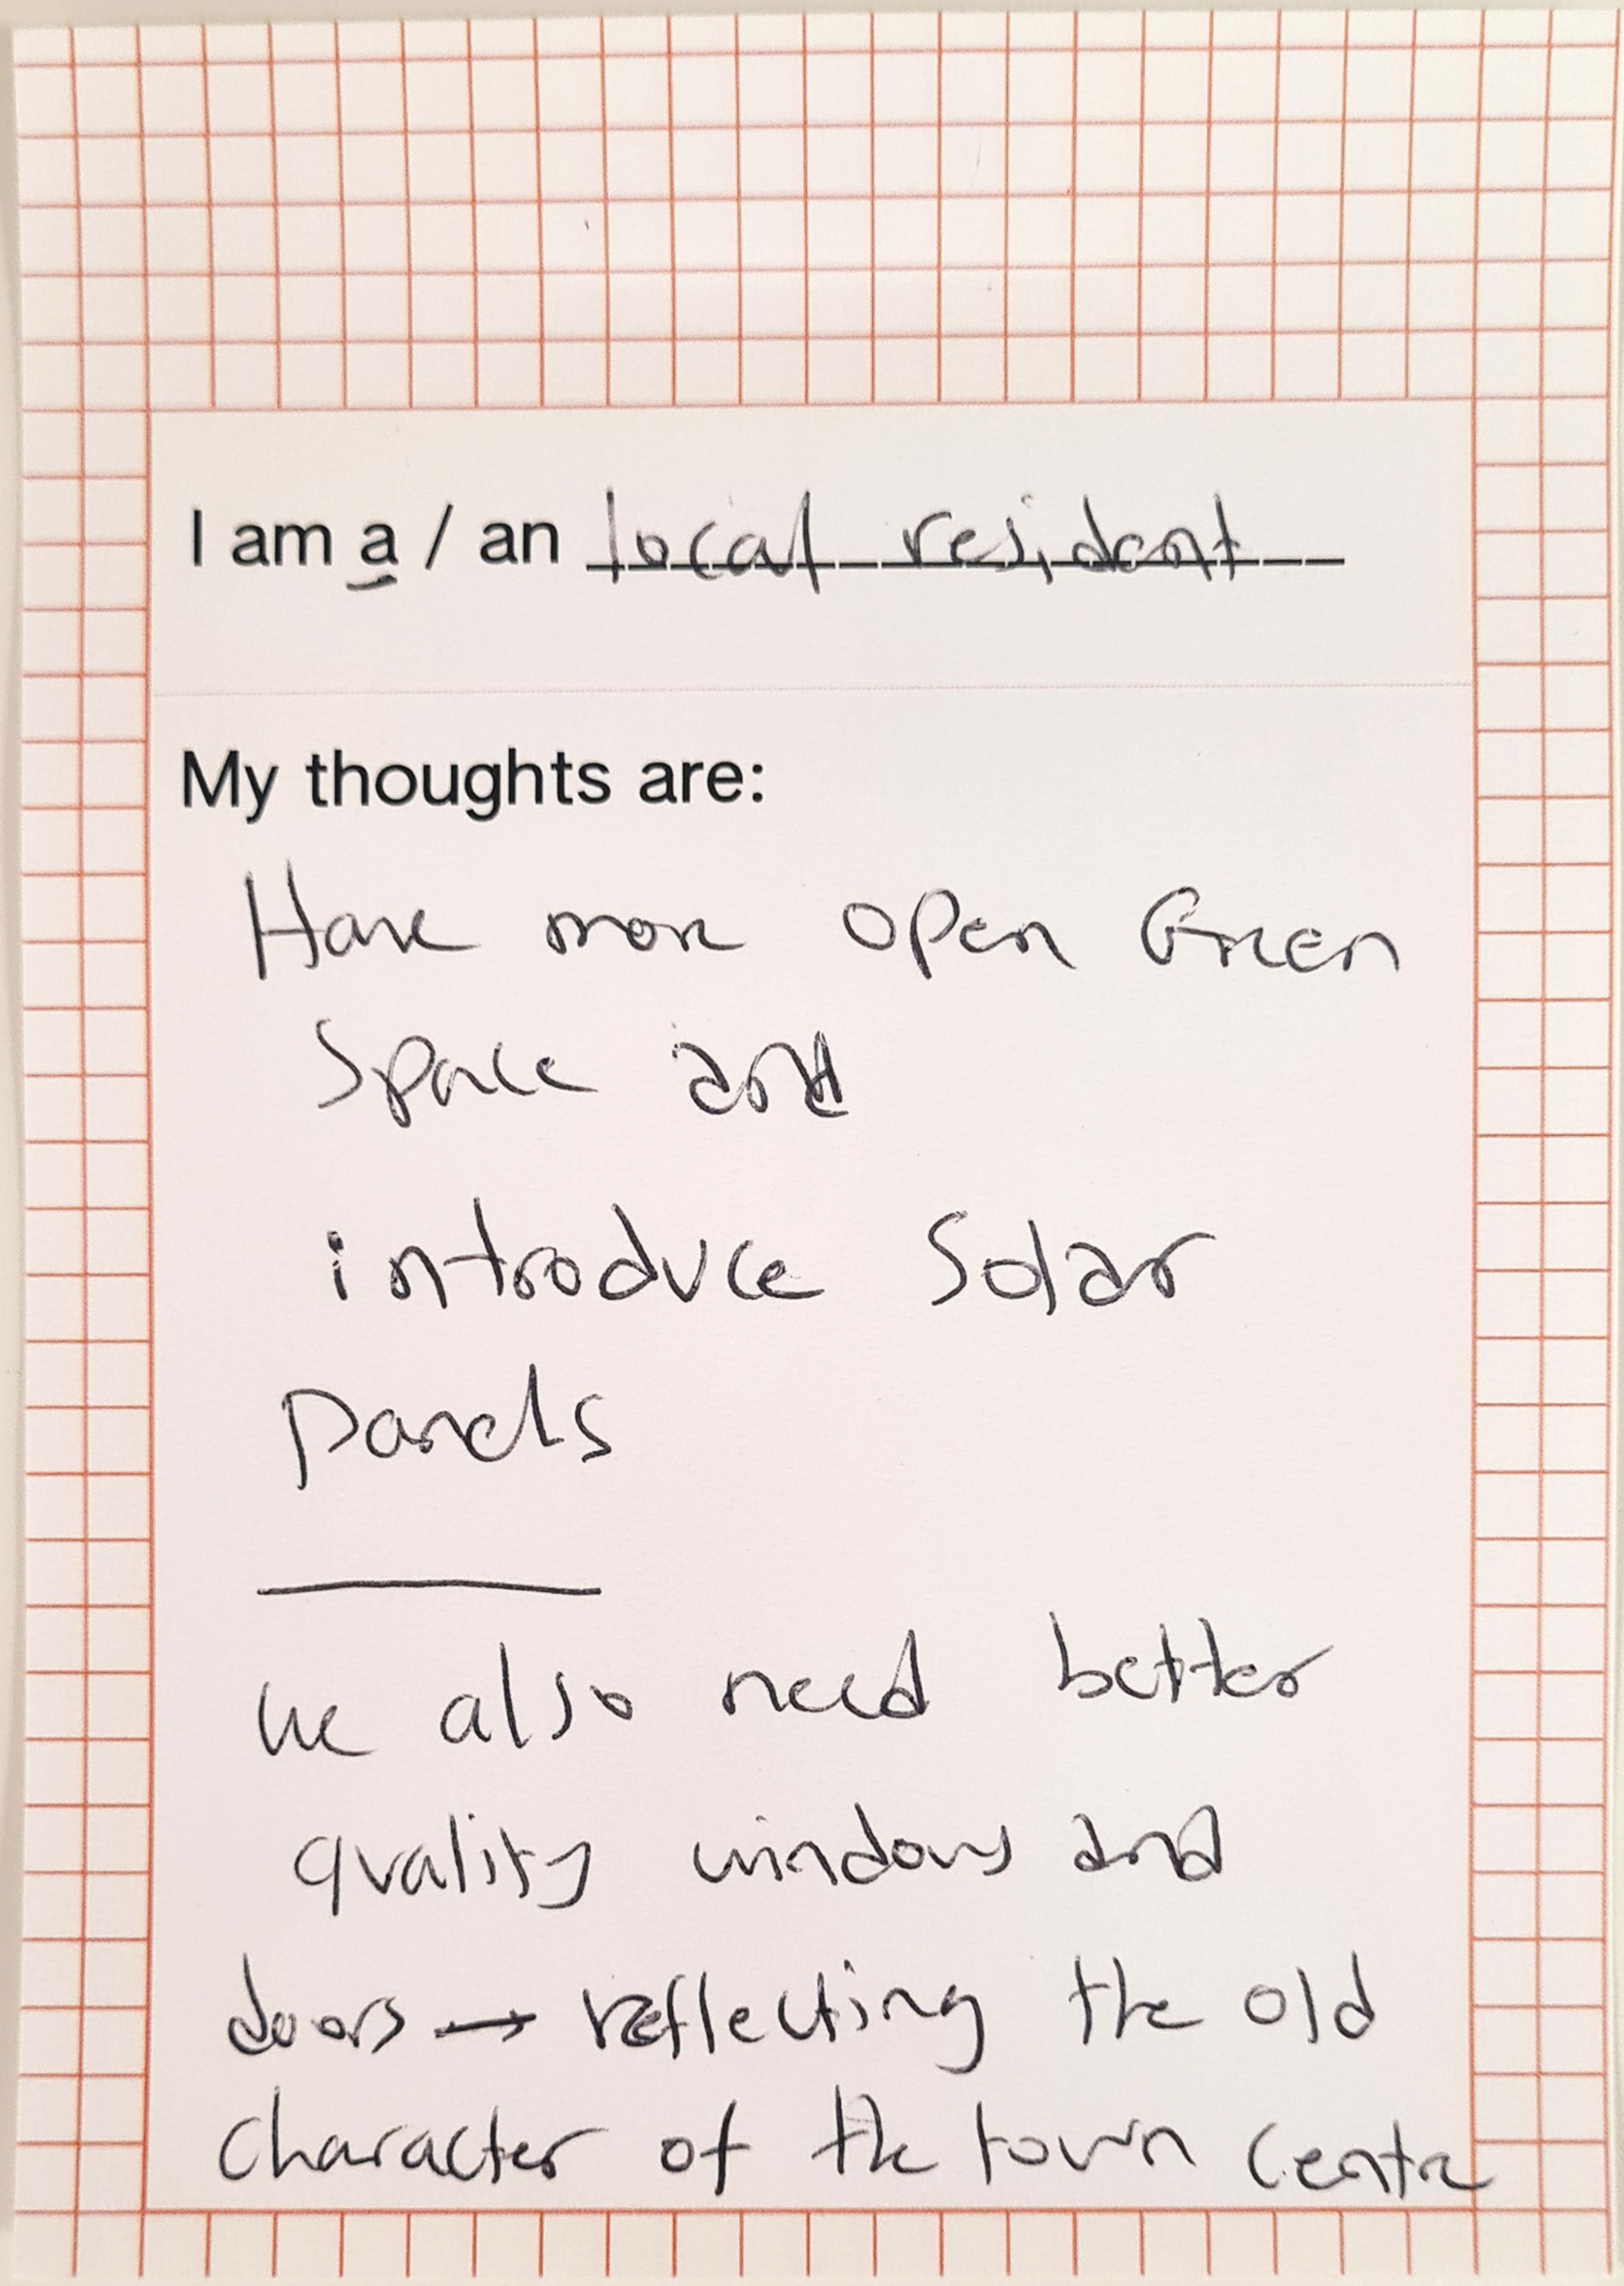 I am a / an local resident
My thoughts are:
Have more open Green
Space and
introduce Solar
Panels
we also need better
quality windows and
doors → reflecting the old
character of the town centre